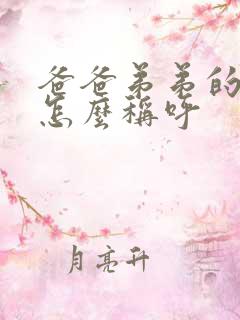 爸爸弟弟的
怎麼稱呼
月亮升